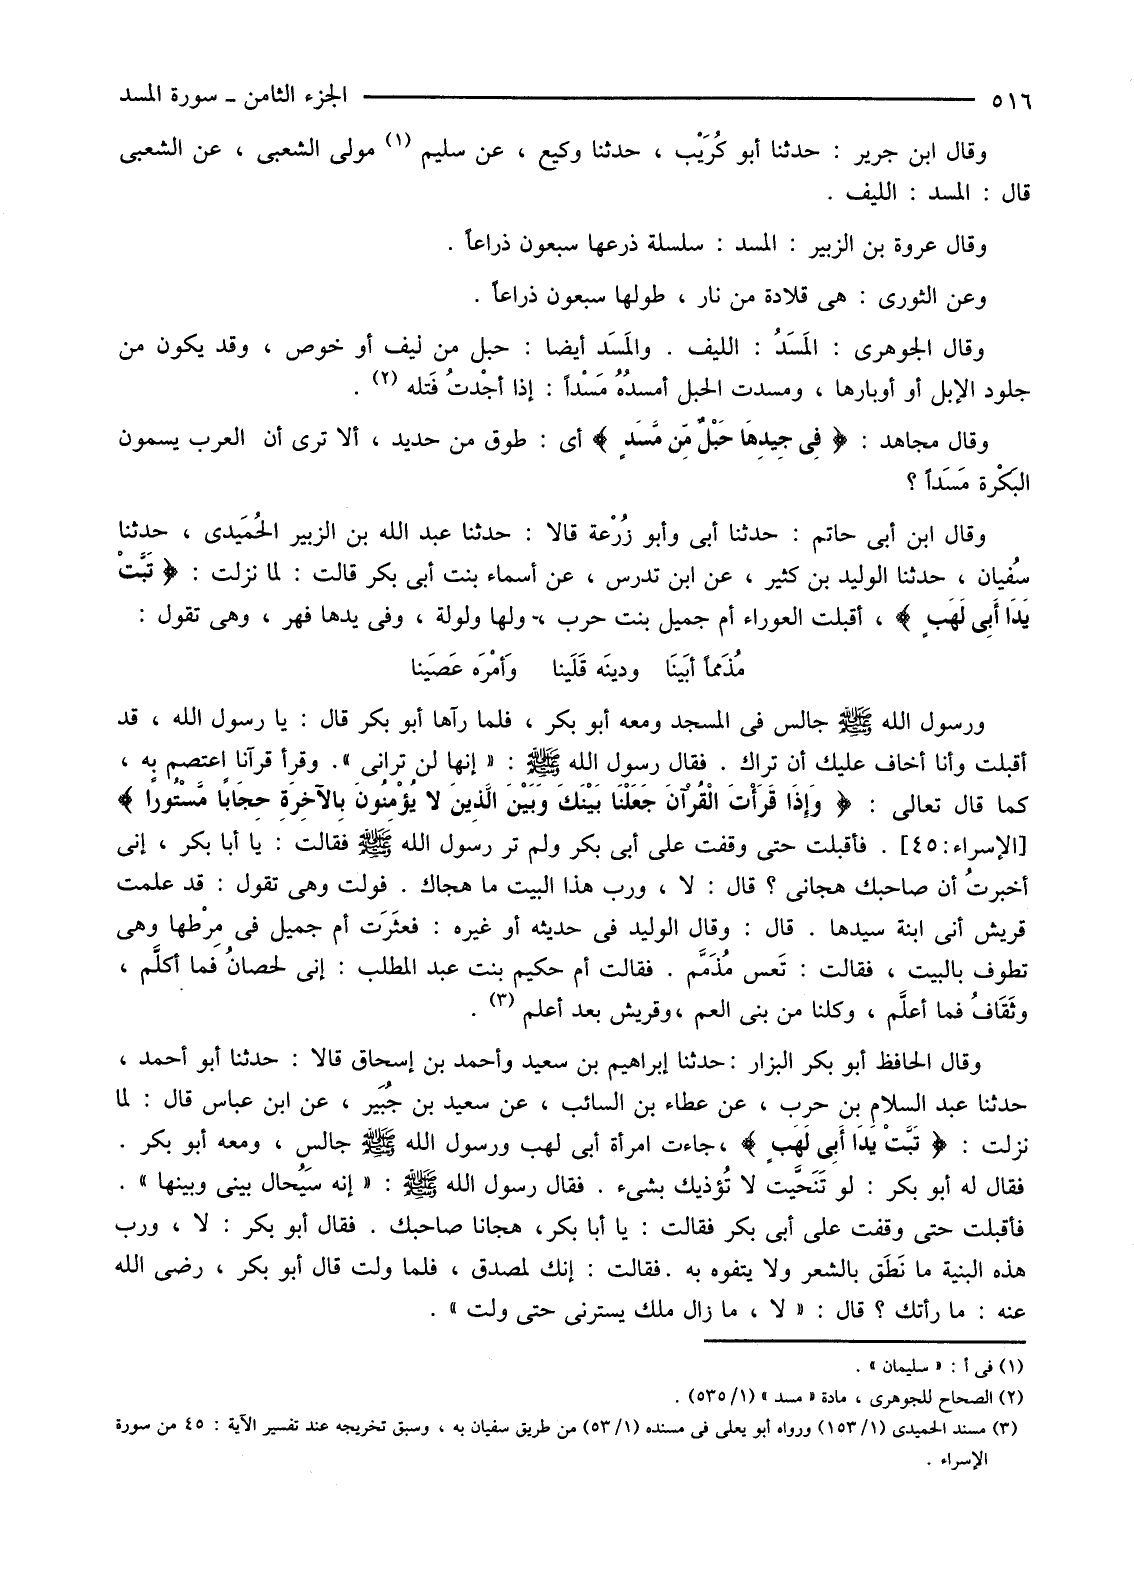 ٥١٦ الجزء الثامن ـ سورة المسد
وقال ابن جرير : حدثنا أبو كُرَيْب ، حدثنا وكيع ، عن سليم (١) مولى الشعبى ، عن الشعبى
قال : المسد : الليف .
وقال عروة بن الزبير : المسد : سلسلة ذرعها سبعون ذراعاً .
وعن الثورى : هى قلادة من نار ، طولها سبعون ذراعاً .
وقال الجوهرى : المَسَدُ : الليف . والمَسَد أيضا : حبل من ليف أو خوص ، وقد يكون من
جلود الإبل أو أوبارها ، ومسدت الحبل أمسدُهُ مَسْداً : إذا أجْدتُ فَتله (٢) .
وقال مجاهد : ﴿ فِى جِيدِهَا حَبْلٌ مِّن مَّسَدٍ ﴾ أى : طوق من حديد ، ألا ترى أن العرب يسمون
البَكْرة مَسَداً ؟
وقال ابن أبى حاتم : حدثنا أبى وأبو زُرْعة قالا : حدثنا عبد الله بن الزبير الحُمَيدى ، حدثنا
سُفيان ، حدثنا الوليد بن كثير ، عن ابن تدرس ، عن أسماء بنت أبى بكر قالت : لما نزلت : ﴿ تَبَّتْ
يَدَا أَبِى لَهَبٍ ﴾ ، أقبلت العوراء أم جميل بنت حرب ، ولها ولولة ، وفى يدها فهر ، وهى تقول :
مُذَمماً أبَينَا ودينَه قَلَينا وَأمْرَه عَصَينا
ورسول الله ﷺ جالس فى المسجد ومعه أبو بكر ، فلما رآها أبو بكر قال : يا رسول الله ، قد
أقبلت وأنا أخاف عليك أن تراك . فقال رسول الله ﷺ : « إنها لن ترانى ». وقرأ قرآنا اعتصم به ،
كما قال تعالى : ﴿ وَإِذَا قَرَأْتَ الْقُرْآنَ جَعَلْنَا بَيْنَكَ وَبَيْنَ الَّذِينَ لا يُؤْمِنُونَ بِالآخِرَةِ حِجَابًا مَّسْتُورًا ﴾
[الإسراء:٤٥] . فأقبلت حتى وقفت على أبى بكر ولم تر رسول الله ﷺ فقالت : يا أبا بكر ، إنى
أخبرتُ أن صاحبك هجانى ؟ قال : لا ، ورب هذا البيت ما هجاك . فولت وهى تقول : قد علمت
قريش أنى ابنة سيدها . قال : وقال الوليد فى حديثه أو غيره : فعثَرَت أم جميل فى مِرْطها وهى
تطوف بالبيت ، فقالت : تَعس مُذَمَّم . فقالت أم حكيم بنت عبد المطلب : إنى لحصانُ فما أكلَّم ،
وثَقَافُ فما أعلَّم ، وكلنا من بنى العم ،وقريش بعد أعلم (٣) .
وقال الحافظ أبو بكر البزار :حدثنا إبراهيم بن سعيد وأحمد بن إسحاق قالا : حدثنا أبو أحمد ،
حدثنا عبد السلام بن حرب ، عن عطاء بن السائب ، عن سعيد بن جُبَير ، عن ابن عباس قال : لما
نزلت : ﴿ تَبَّتْ يَدَا أَبِى لَهَبٍ ﴾ ،جاءت امرأة أبى لهب ورسول الله ﷺ جالس ، ومعه أبو بكر .
فقال له أبو بكر : لو تَنَحَّيت لا تُؤذيك بشىء . فقال رسول الله ﷺ : « إنه سَيُحال بينى وبينها » .
فأقبلت حتى وقفت على أبى بكر فقالت : يا أبا بكر، هجانا صاحبك . فقال أبو بكر : لا ، ورب
هذه البنية ما نَطَق بالشعر ولا يتفوه به .فقالت : إنك لمصدق ، فلما ولت قال أبو بكر ، رضى الله
عنه : ما رأتك ؟ قال : « لا ، ما زال ملك يسترنى حتى ولت » .
(١) فى أ : « سليمان » .
(٢) الصحاح للجوهرى ، مادة « مسد » (١/ ٥٣٥) .
(٣) مسند الحميدى (١/ ١٥٣) ورواه أبو يعلى فى مسنده (١/ ٥٣) من طريق سفيان به ، وسبق تخريجه عند تفسير الآية : ٤٥ من سورة
الإسراء .